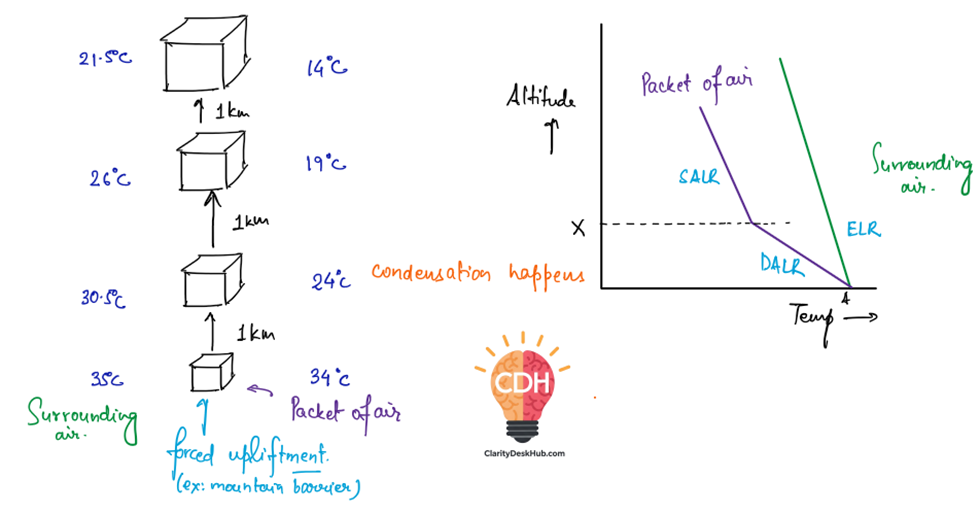 21.5°C
14°C
1km
26°C
19°C
1km
30.5°C
24°C
condensation happens
1km
35°C
34°C
Surrounding
air.
Packet of air
forced upliftment.
(ex: mountain barrier)
CDH
ClarityDeskHub.com
Altitude
Packet of air
SALR
Surrounding
air.
X
ELR
DALR
A
Temp